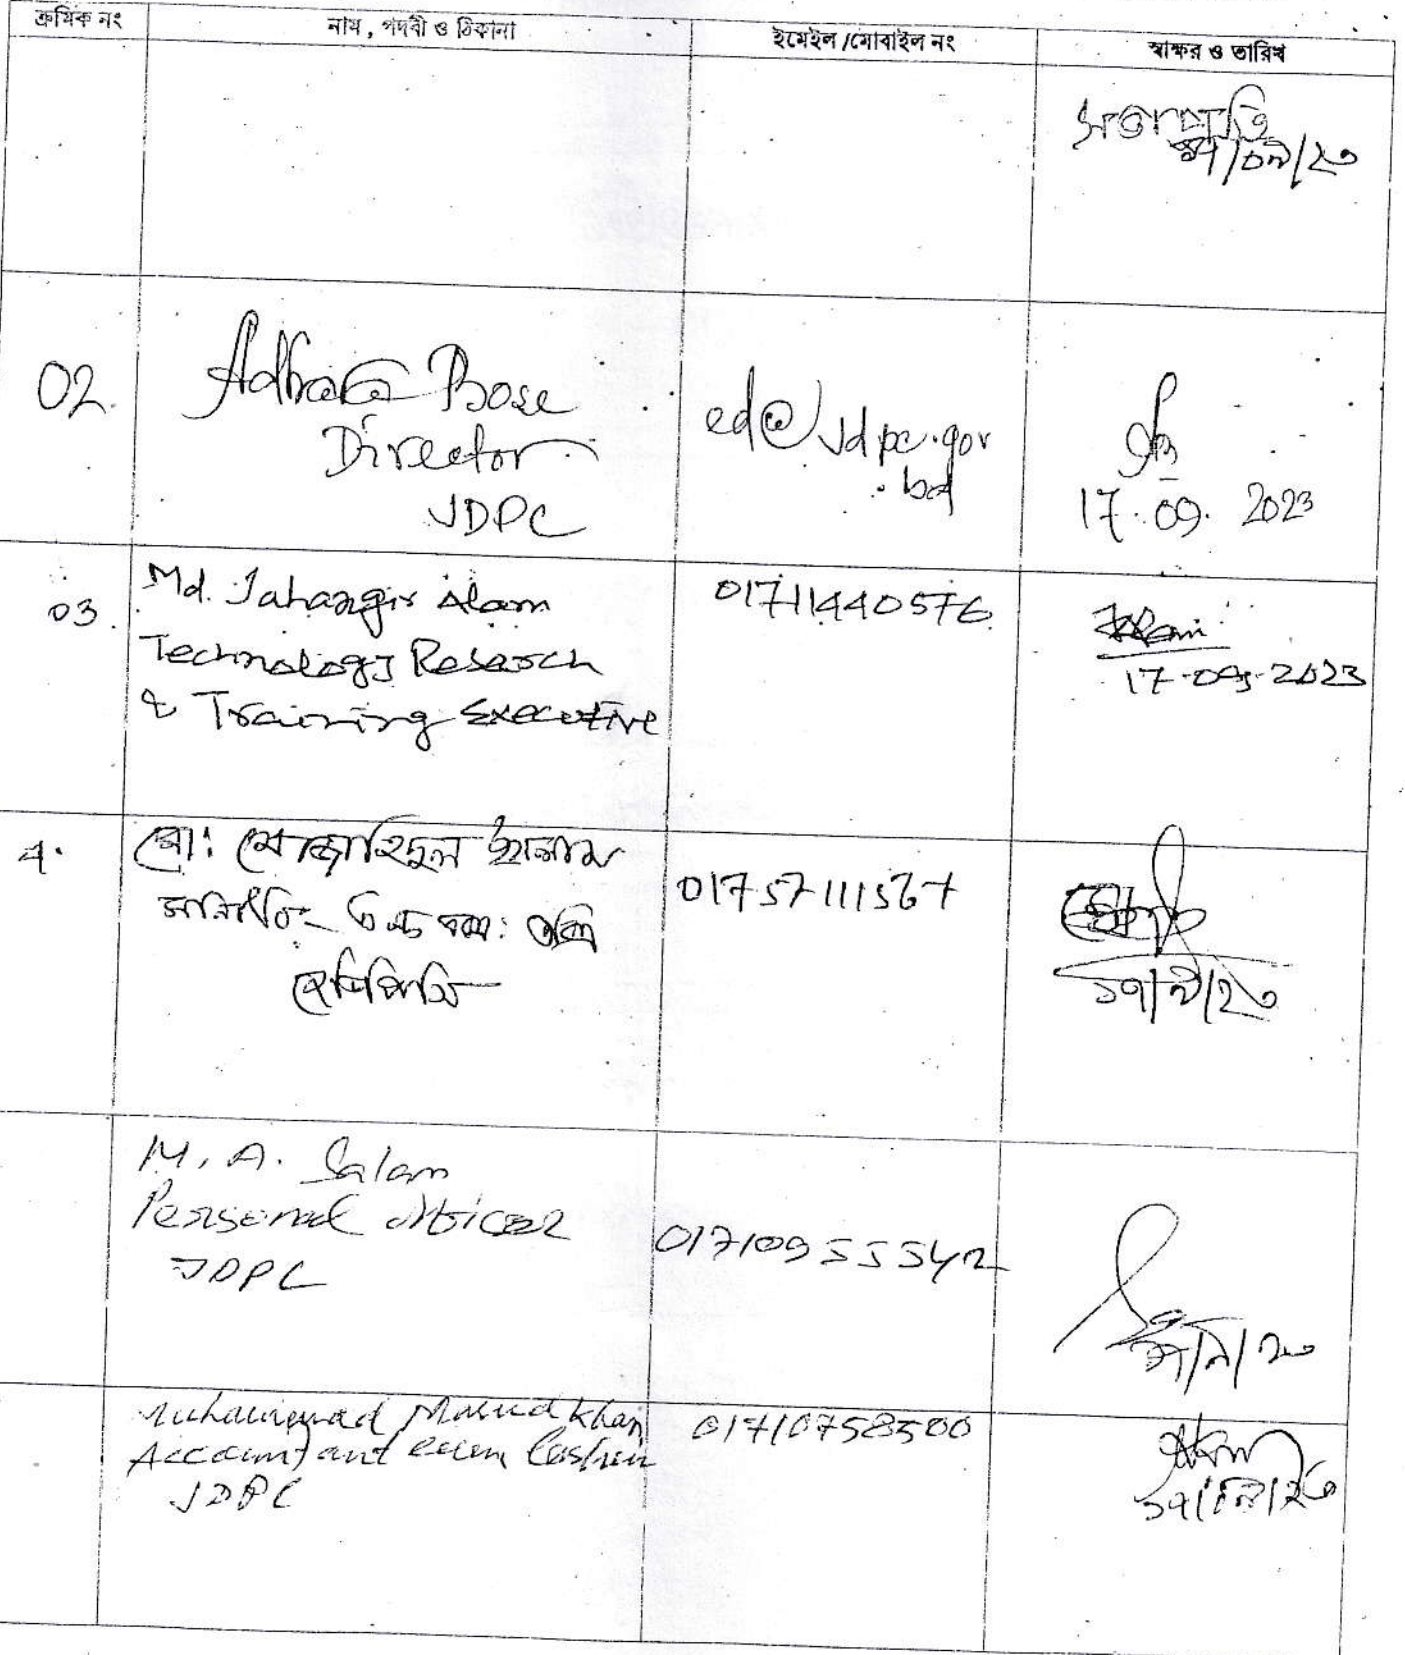 ক্রমিক নং
নাম, পদবী ও ঠিকানা
ইমেইল /মোবাইল নং
স্বাক্ষর ও তারিখ
সভাপতি
১৭/০৯/২৩
02.
Bose
Director
JDPC
ed@jdpc.gov
.bd
17.09.2023
03.
Md. Jahangir Alam
Technology Research
& Training Executive
01711440576
17-09-2023
4.
মো: মোজাহিদুল ইসলাম
জেডিপিসি
01757111567
১৭/৯/২৩
M. A. Salam
Personal Officer
JDPC
01710955542
Muhammad Masud Khan
Accountant cum Cashier
JDPC
01710758500
১৭/৯/২৩